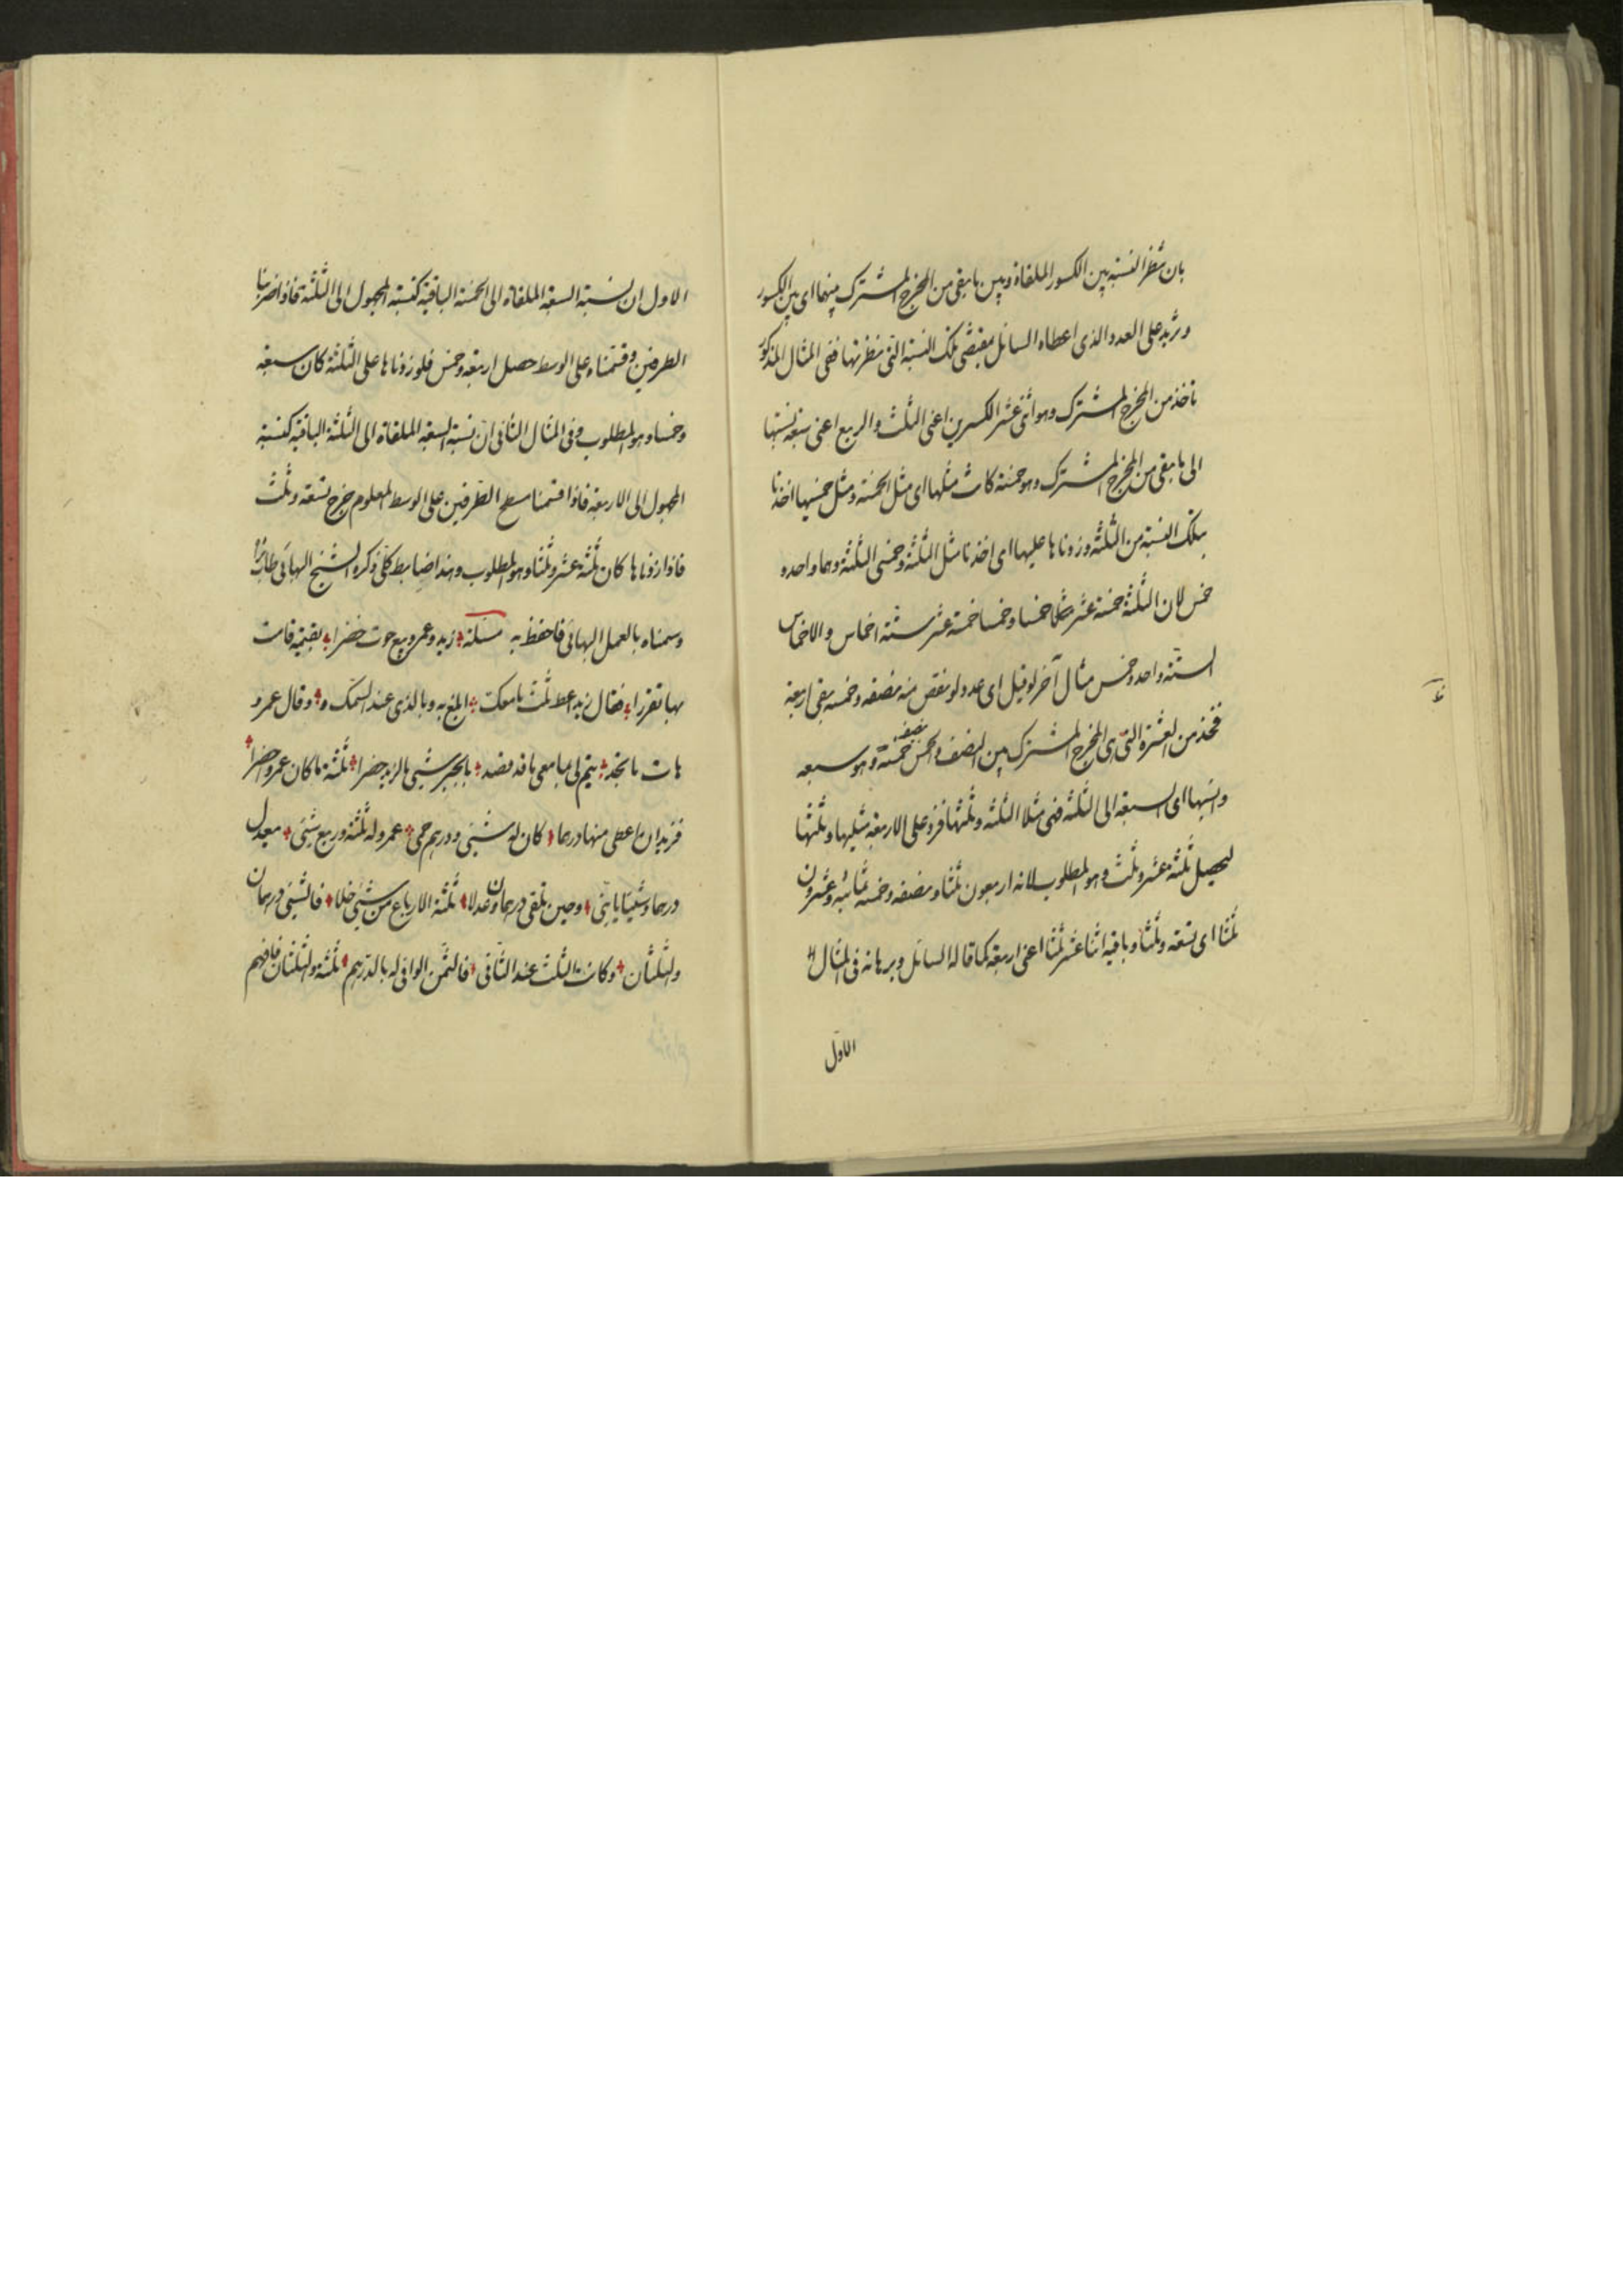 بان ينظر النسبة بين الكسور الملقاة وبين ما بقى من المخرج المشترك منها اى بين الكسور
ويزيد على العدد الذى اعطاه السائل بمقتضى تلك النسبة التى ينظر بها ففى المثال المذكور
ناخذ من المخرج المشترك وهو اثنى عشر الكسرين اعنى الثلث والربع اعنى سبعة نسبتها
الى ما بقى من المخرج المشترك وهو خمسة كانت مثلها اى مثل الخمسة ومثل خمسيها اخذنا
بتلك النسبة من الثلثة وزدناها عليها اى اخذنا مثل الثلثة وخمسى الثلثة وهما واحد و
خمس لان الثلثة خمسة عشر خمسا وخمسا خمسة عشر ستة اخماس والاخماس
الستة واحد وخمس مثال آخر لو قيل اى عدد لو نقص منه نصفه وخمسه بقى اربعة
فخذ من العشرة التى هى المخرج المشترك بين النصف والخمس نصفه خمسة وهو سبعة
وانسبها اى السبعة الى الثلثة فهى مثلا الثلثة وثلثها فزد على الاربعة مثليها وثلثها
ليحصل ثلثة عشر وثلث وهو المطلوب لانه اربعون ثلثا ونصفه وخمسه ثمانية وعشرون
ثلثا اى تسعة وثلثا وباقيه اثنا عشر ثلثا اعنى اربعة كما قاله السائل وبرهانه فى المثال
الاول
الاول ان نسبة السبعة الملقاة الى الخمسة الباقية كنسبة المجهول الى الثلثة فاذا ضربنا
الطرفين وقسمناه على الوسط حصل اربعة وخمس فلو زدناها على الثلثة كان سبعة
وخمسا وهو المطلوب وفى المثال الثانى ان نسبة السبعة الملقاة الى الثلثة الباقية كنسبة
المجهول الى الاربعة فاذا قسمنا مسطح الطرفين على الوسط المعلوم خرج تسعة وثلث
فاذا زدناها كان ثلثة عشر وثلثا وهو المطلوب وهذا ضابط كلى ذكره الشيخ البهائى طاب ثراه
وسمناه بالعمل البهائى فاحفظ به مسئلة زيد وعمرو بيع حوت حضرا بقيمة قامت
بها تقررا فقال زيد اعط ثلث ما معك ابلغ به وبالذى عند السمك وقال عمرو
هات ما تجد يتم لى بما معى ما قد قصد بالجبر شيئ بالزيد حضرا ثلثة ما كان عمرو احضرا
فزيد ان اعطى منها درهما كان له شيئ ودرهم حمى عمرو له ثلثة وربع شيئ معدل
درهما وشيئا يا بنى وحين تلقى درهمان عدلا ثلثة الارباع من شيئ خلا فالشيئ درهمان
والثلثان وكانت الثلث عند الثانى فالثمن الوافى له بالدرهم ثلثة والثلثان فافهم